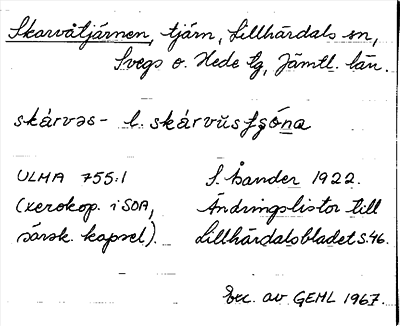 Skarvåtjärnen, tjärn, Lillhärdals sn,
Svegs o. Hede tg, Jämtl. län.
skárvəs- l. skárvŭs
ULMA 755:1 S. Lander 1922.
(xerokop. i SOA, Ändringslistor till
särsk. kapsel). Lillhärdalsbladet s. 46.
Exc. av GEHL 1967.